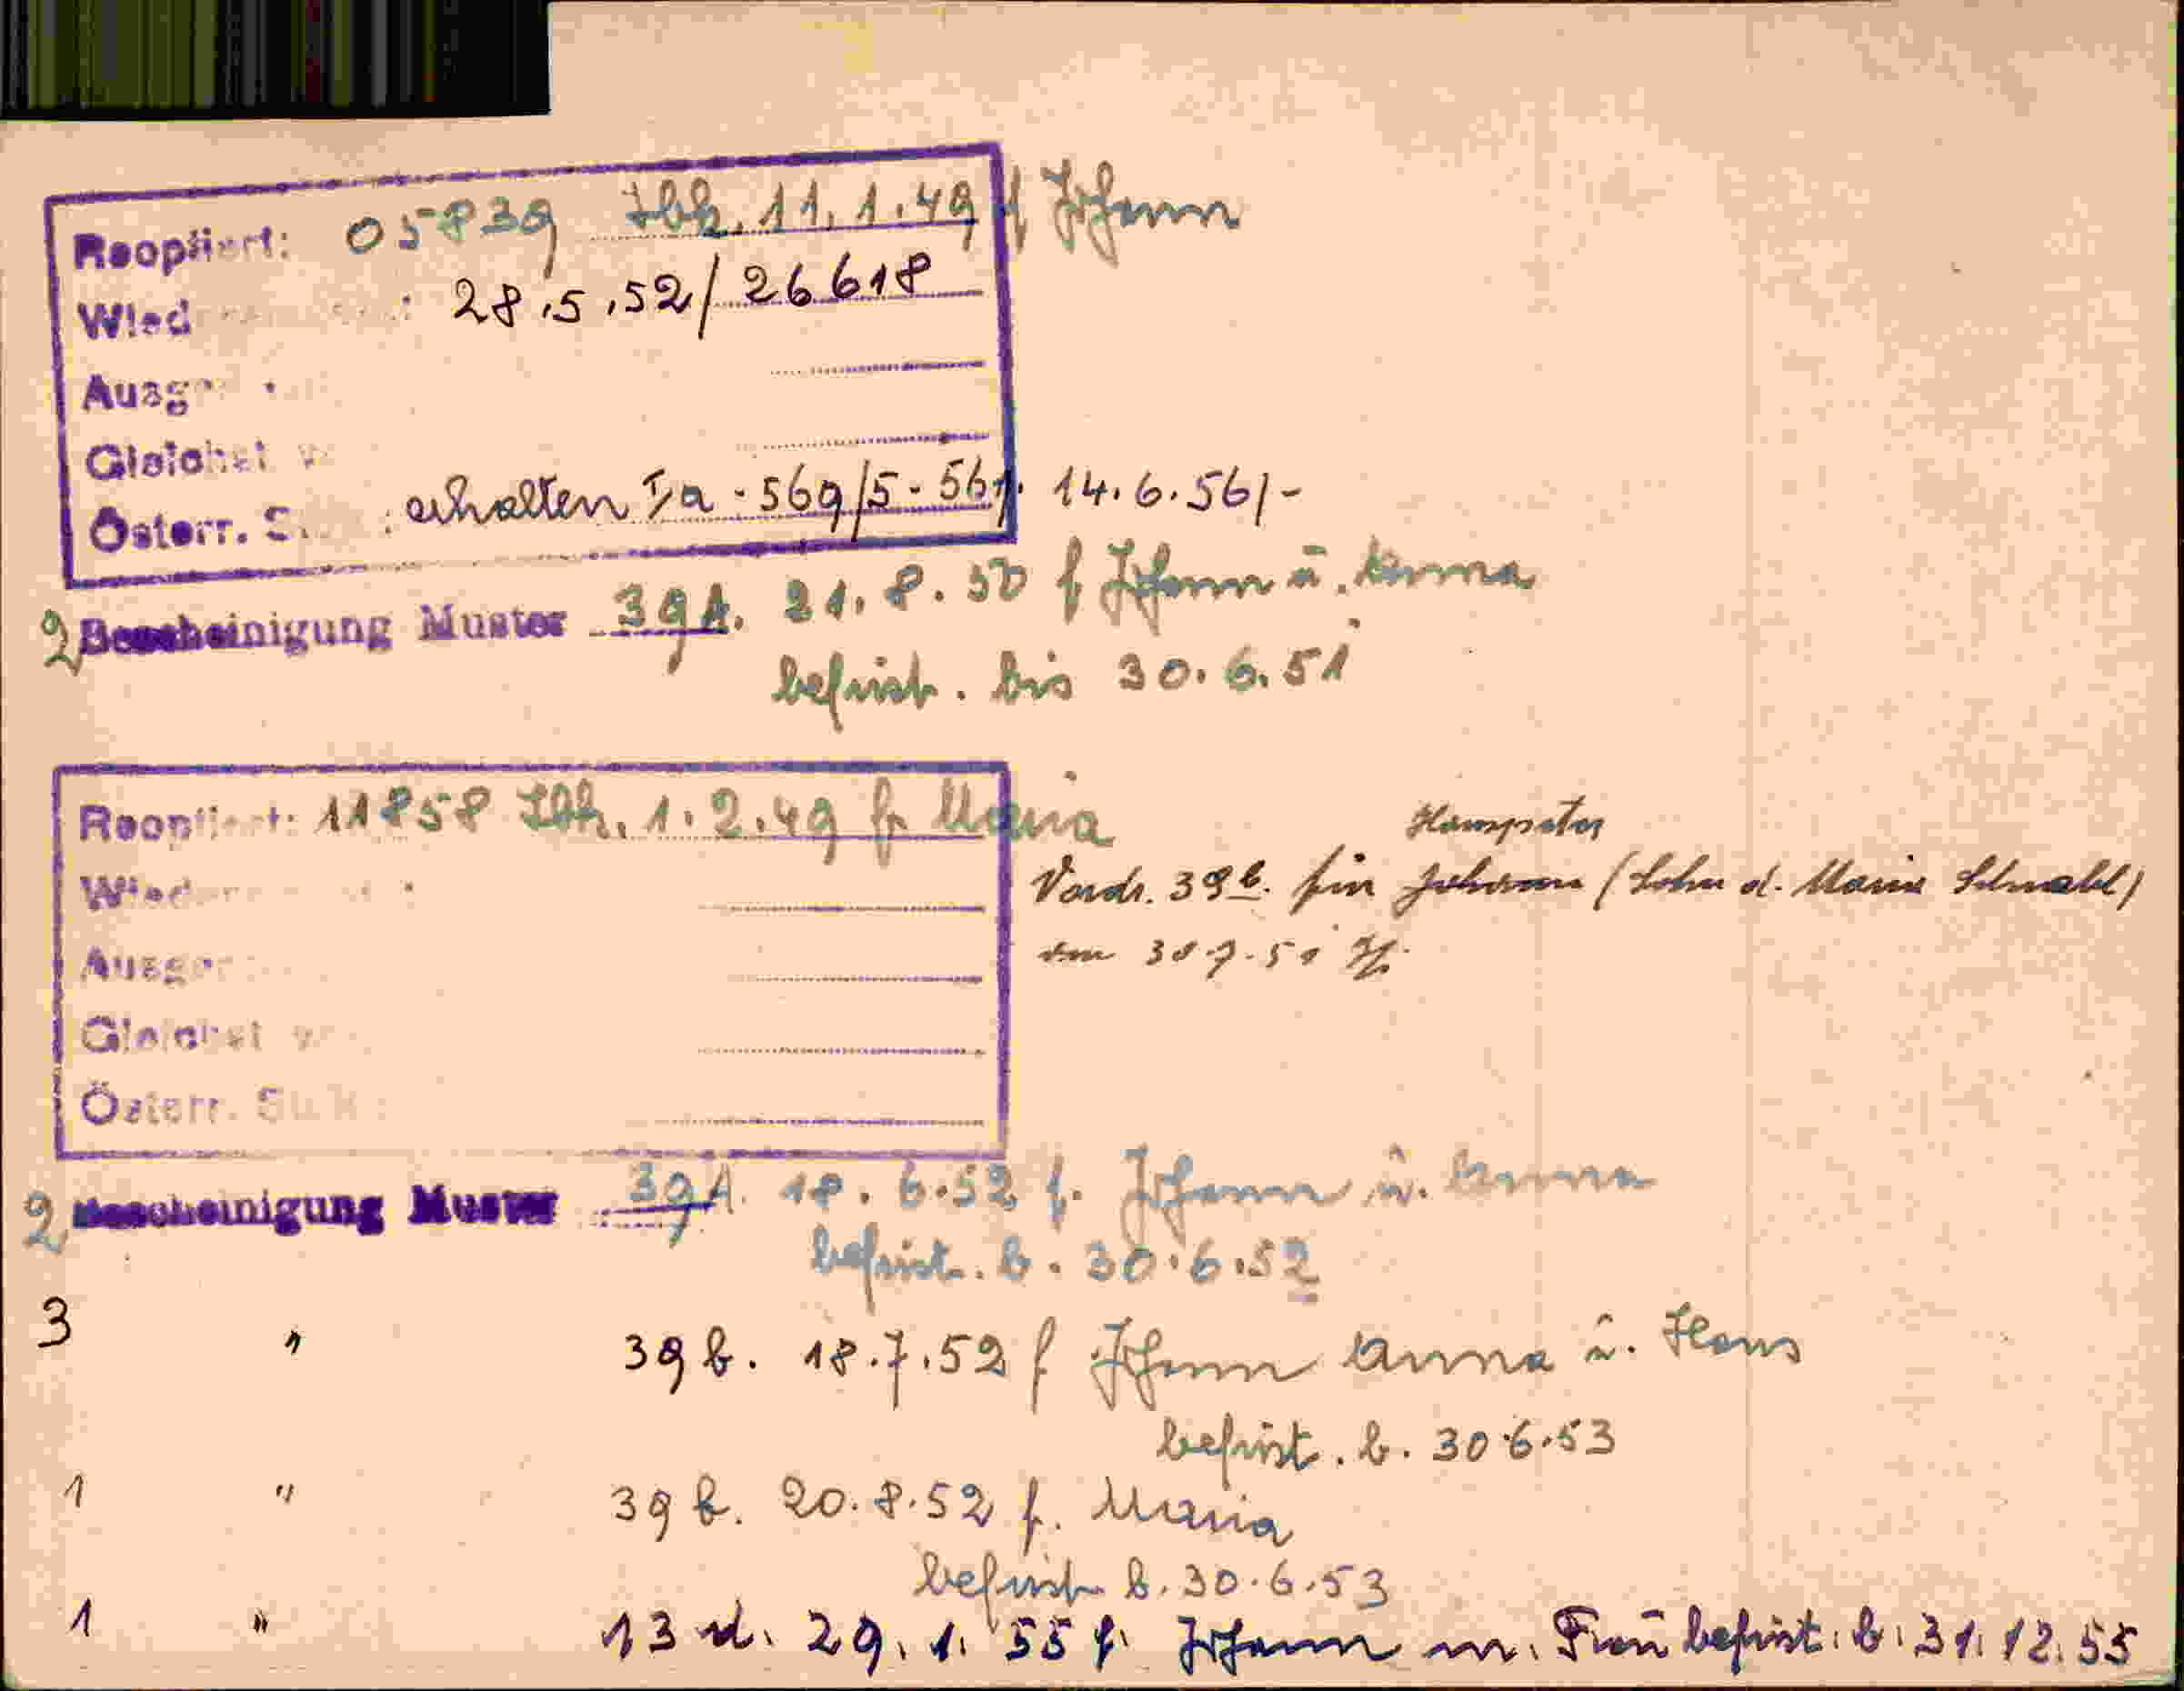 Reoptiert: 05839 Ibk. 11.1.49 f Johann
Wied : 28.5.52/26618
Ausg
Gleichst
Österr. S. : erhalten Ia-569/5-56 14.6.56/-
2 Bescheinigung Muster 39A. 21.8.50 f Johann u. Anna
befrist. bis 30.6.51
Reoptiert: 11858 Ibk. 1.2.49 f. Maria
Wied
Ausg
Gleichst
Österr. St
Hanspeter
Vordr. 39b. für Johann (Sohn d. Maria Schnabl)
am 7.51
2 Bescheinigung Muster 39A. 18.6.52 f. Johann u. Anna
befrist. b. 30.6.52
3 " 39b. 18.7.52 f Johann Anna u. Hans
befrist. b. 30.6.53
1 " 39b. 20.8.52 f. Maria
befrist b. 30.6.53
1 " 13 d. 29.1.55 f. Johann m. Frau befrist. b. 31.12.55